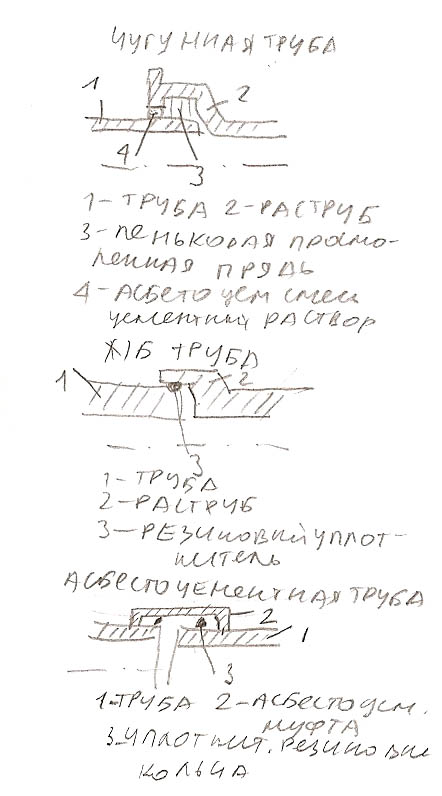 ЧУГУННАЯ ТРУБА
1
2
4
3
1- ТРУБА 2-РАСТРУБ
3- ПЕНЬКОВАЯ ПРОСМО-
ЛЕННАЯ ПРЯДЬ
4- АСБЕТОЦЕМ СМЕСЬ
ЦЕМЕНТНЫЙ РАСТВОР
Ж/Б ТРУБА
1
2
3
1- ТРУБА
2- РАСТРУБ
3- РЕЗИНОВЫЙ УПЛОТ-
НИТЕЛЬ
АСБЕСТОЦЕМЕНТНАЯ ТРУБА
2
1
3
1-ТРУБА 2-АСБЕСТОЦЕМ.
МУФТА
3-УПЛОТНИТ. РЕЗИНОВЫЕ
КОЛЬЦА